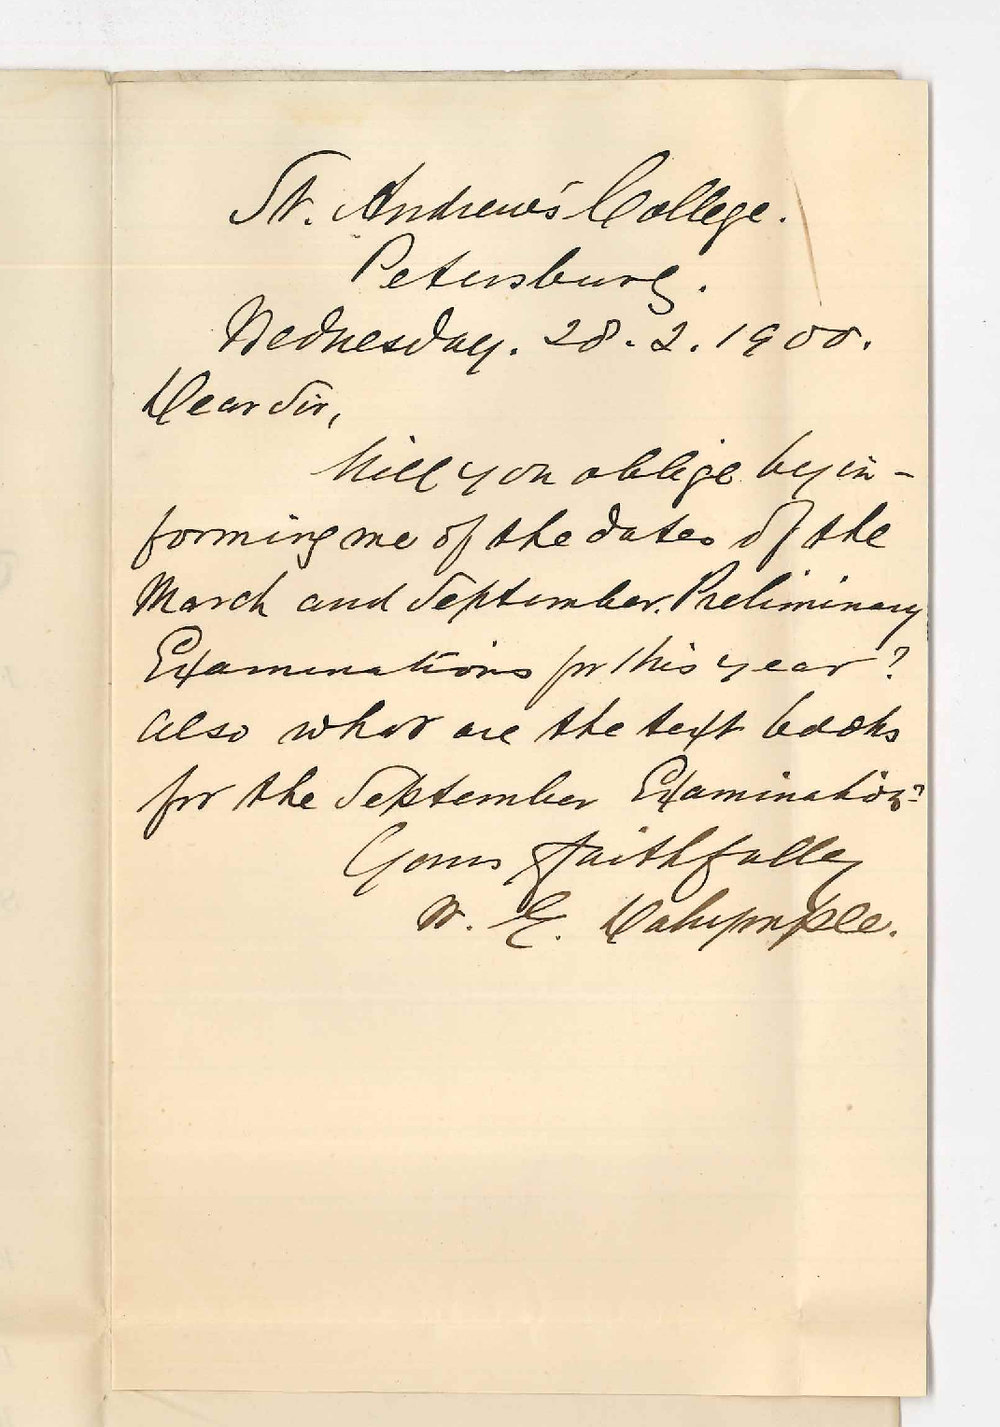 St. Andrew's College.
Petersburg.
Wednesday. 28. 2. 1900.
Dear Sir,
Will you oblige by in-
forming me of the dates of the
March and September. Preliminary
Examinations for this year?
Also what are the text books
for the September Examination?
Yours faithfully
W. E. Dalrymple.